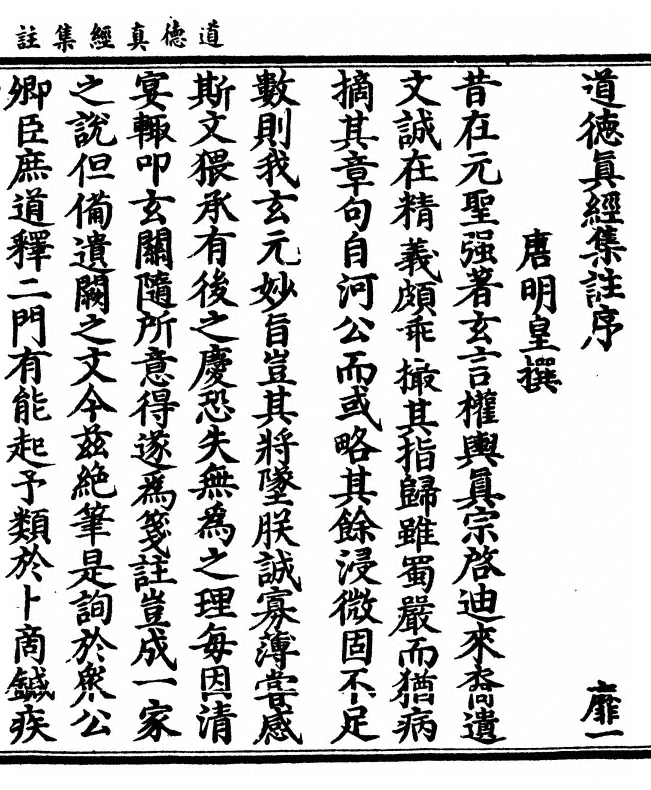 道德真經集註
道德真經集註序
靡一
唐明皇撰
昔在元聖强著玄言權輿真宗啓迪來裔遺
文誠在精義頗乖撮其指歸雖蜀嚴而猶病
摘其章句自河公而或略其餘浸微固不足
數則我玄元妙旨豈其將墜朕誠寡薄嘗感
斯文猥承有後之慶恐失無爲之理每因清
宴輙叩玄關隨所意得遂爲箋註豈成一家
之說但備遺闕之文今兹絶筆是詢於衆公
卿臣庶道釋二門有能起予類於卜商鍼疾